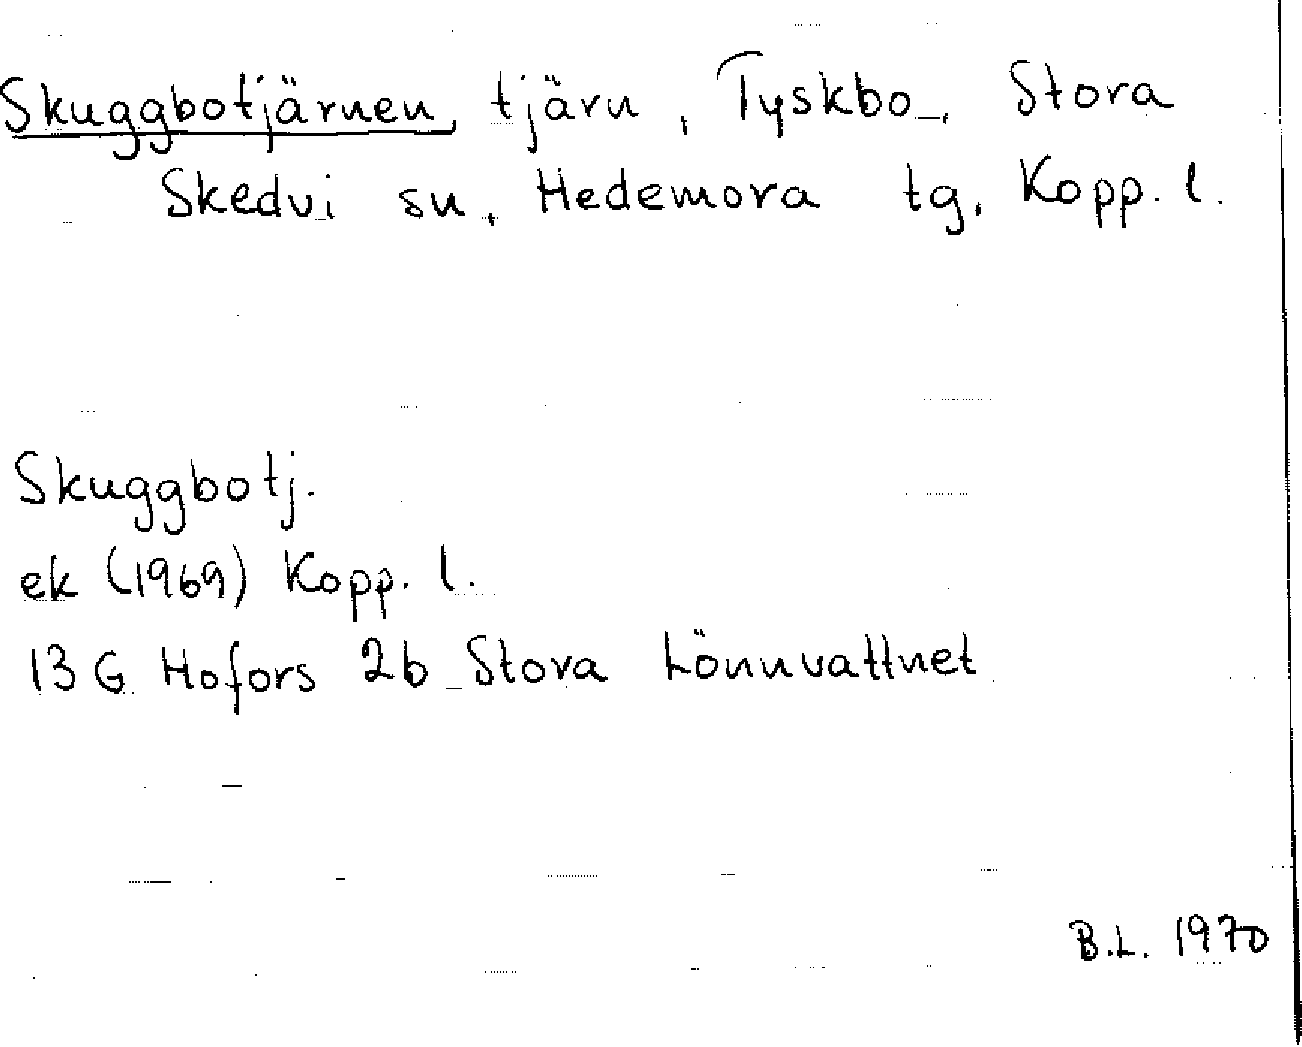 Skuggbotjärnen, tjärn, Tyskbo, Stora
Skedvi sn, Hedemora tg, Kopp. l.
Skuggbotj.
ek (1969) Kopp. l.
13 G Hofors 2b Stora Lönnvattnet
B.L. 1970